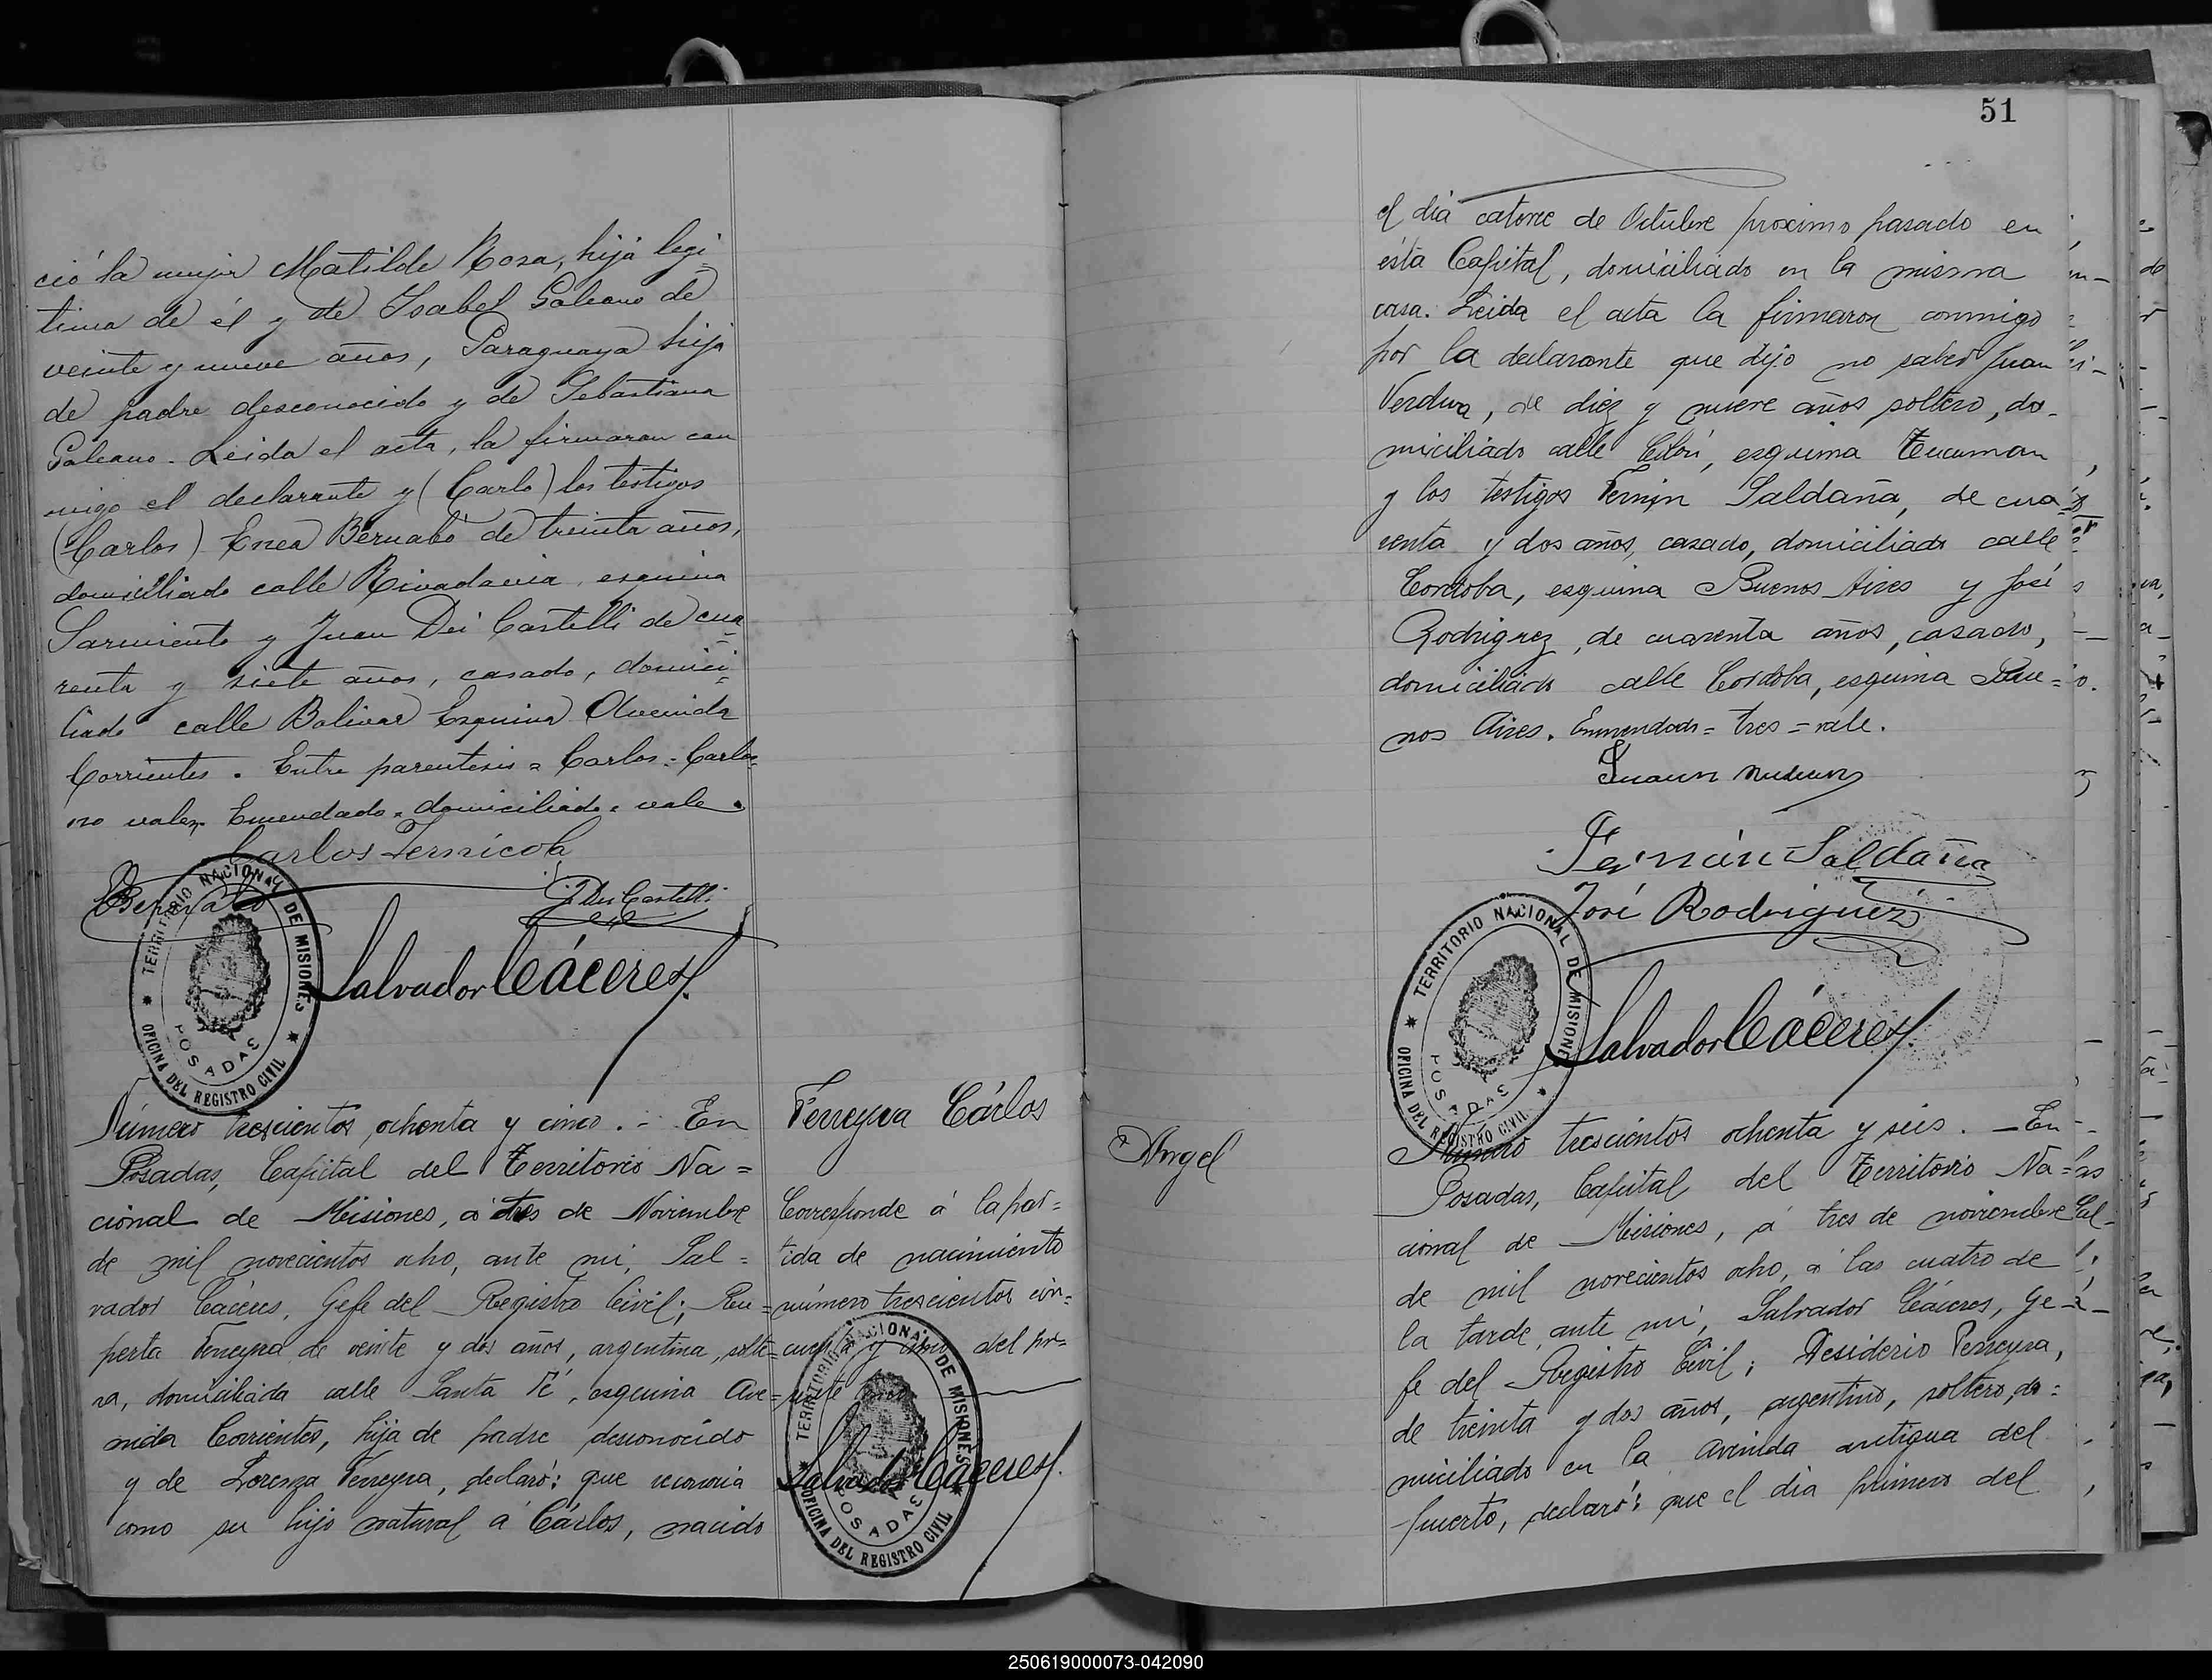 ció la mujer Matilde Rosa, hija legi-
tima de él y de Ysabel Galeano de
veinte y nueve años, Paraguaya hija
de padre desconocido y de Sebastiana
Galeano. Leida el acta, la firmaron con
migo el declarante y (Carlo) los testigos
(Carlos) Enea Bernabó de treinta años,
domiciliado calle Rivadavia, esquina
Sarmiento y Juan Dei Castelli de cua-
renta y siete años, casado, domici-
liado calle Bolivar Esquina Avenida
Corrientes. Entre parentesis = Carlos = Carlos
no valen Enmendado = domiciliado = vale.
Carlos Fernicola
EBernabó
J. Dei Castelli
TERRITORIO NACIONAL DE MISIONES
POSADAS
OFICINA DEL REGISTRO CIVIL
Salvador Cáceres
Número trescientos ochenta y cinco. - En
Posadas, Capital del Territorio Na=
cional de Misiones, á tres de Noviembre
de mil novecientos ocho, ante mi, Sal=
vador Cáceres, Gefe del Registro Civil; Ru=
perta Ferreyra de veinte y dos años, argentina, solte=
ra, domiciliada calle Santa Fé, esquina Ave=
nida Corrientes, hija de padre desconocido
y de Lorenza Ferreyra, declaró: que reconocia
como su hijo natural á Cárlos, nacido
Ferreyra Cárlos
Corresponde á la par=
tida de nacimiento
número trescientos cin=
cuenta y cinco del pre=
sente
TERRITORIO NACIONAL DE MISIONES
POSADAS
OFICINA DEL REGISTRO CIVIL
Salvador Cáceres
51
el dia catorce de Octubre proximo pasado en
ésta Capital, domiciliado en la misma
casa. Leida el acta la firmaron conmigo
por la declarante que dijo no saber Juan
Verdun, de diez y nueve años soltero, do-
miciliado calle Colón, esquina Tucuman
y los testigos Fermin Saldaña, de cua=
renta y dos años, casado, domiciliado calle
Cordoba, esquina Buenos Aires y José
Rodriguez, de cuarenta años, casado,
domiciliado calle Cordoba, esquina Bue=
nos Aires. Enmendado = tres = vale.
Juan
Fermín Saldaña
José Rodriguez
TERRITORIO NACIONAL DE MISIONES
POSADAS
OFICINA DEL REGISTRO CIVIL
Salvador Cáceres
Angel
Número trescientos ochenta y seis. - En
Posadas, Capital del Territorio Na=
cional de Misiones, á tres de noviembre
de mil novecientos ocho, á las cuatro de
la tarde, ante mi, Salvador Cáceres, Ge-
fe del Registro Civil; Desiderio Ferreyra,
de treinta y dos años, argentino, soltero, do=
miciliado en la Avenida antigua del
puerto, declaró: que el dia primero del
250619000073-042090